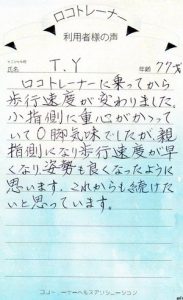 ロコトレーナー
利用者様の声
氏名 T.Y 年齢 77才
ロコトレーナーに乗ってから
歩行速度が変わりました。
小指側に重心がかかって
いてO脚気味でしたが、親
指側になり歩行速度が早
くなり姿勢も良くなったように
思います。これからも続けた
いと思っています。